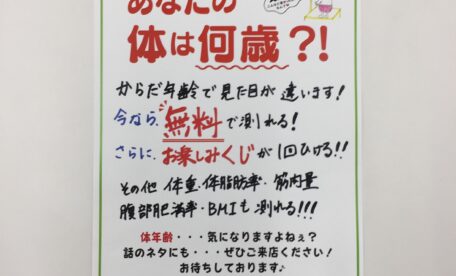 あなたの
体は何歳?!
からだ年齢で見た目が違います!
今なら、無料で測れる!
さらに、お楽しみくじが1回ひける!!
その他 体重・体脂肪率・筋肉量
腹部肥満率・BMIも測れる!!!
体年齢・・・気になりますよねぇ?
話のネタにも・・・ぜひご来店ください!
お待ちしております♪